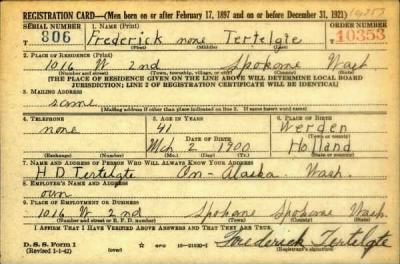 REGISTRATION CARD—(Men born on or after February 17, 1897 and on or before December 31, 1921)
SERIAL NUMBER 1. NAME (Print) ORDER NUMBER
T 806 Frederick none Tertelgte T 10353
(First) (Middle) (Last)
2. PLACE OF RESIDENCE (Print)
1016 W 2nd Spokane Wash
(Number and street) (Town, township, village, or city) (County) (State)
[THE PLACE OF RESIDENCE GIVEN ON THE LINE ABOVE WILL DETERMINE LOCAL BOARD
JURISDICTION; LINE 2 OF REGISTRATION CERTIFICATE WILL BE IDENTICAL]
3. MAILING ADDRESS
same
[Mailing address if other than place indicated on line 2. If same insert word same]
4. TELEPHONE 5. AGE IN YEARS 6. PLACE OF BIRTH
none 41 Werden
DATE OF BIRTH (Town or county)
Mch 2 1900 Holland
(Exchange) (Number) (Mo.) (Day) (Yr.) (State or country)
7. NAME AND ADDRESS OF PERSON WHO WILL ALWAYS KNOW YOUR ADDRESS
H D Tertelgte On - Alaska. Wash.
8. EMPLOYER'S NAME AND ADDRESS
own
9. PLACE OF EMPLOYMENT OR BUSINESS
1016 W 2nd Spokane Spokane Wash.
(Number and street or R. F. D. number) (Town) (County) (State)
I AFFIRM THAT I HAVE VERIFIED ABOVE ANSWERS AND THAT THEY ARE TRUE.
D. S. S. Form 1
(Revised 1-1-42) (over) Frederick Tertelgte
(Registrant's signature)